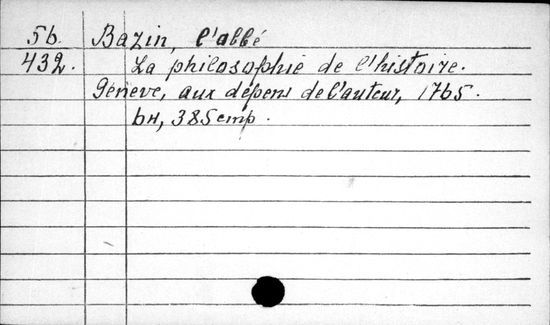 56 Bazin, l'abbé
432. La philosophie de l'histoire.
Génève, aux dépens de l'auteur, 1765.
bн, 385 стр.